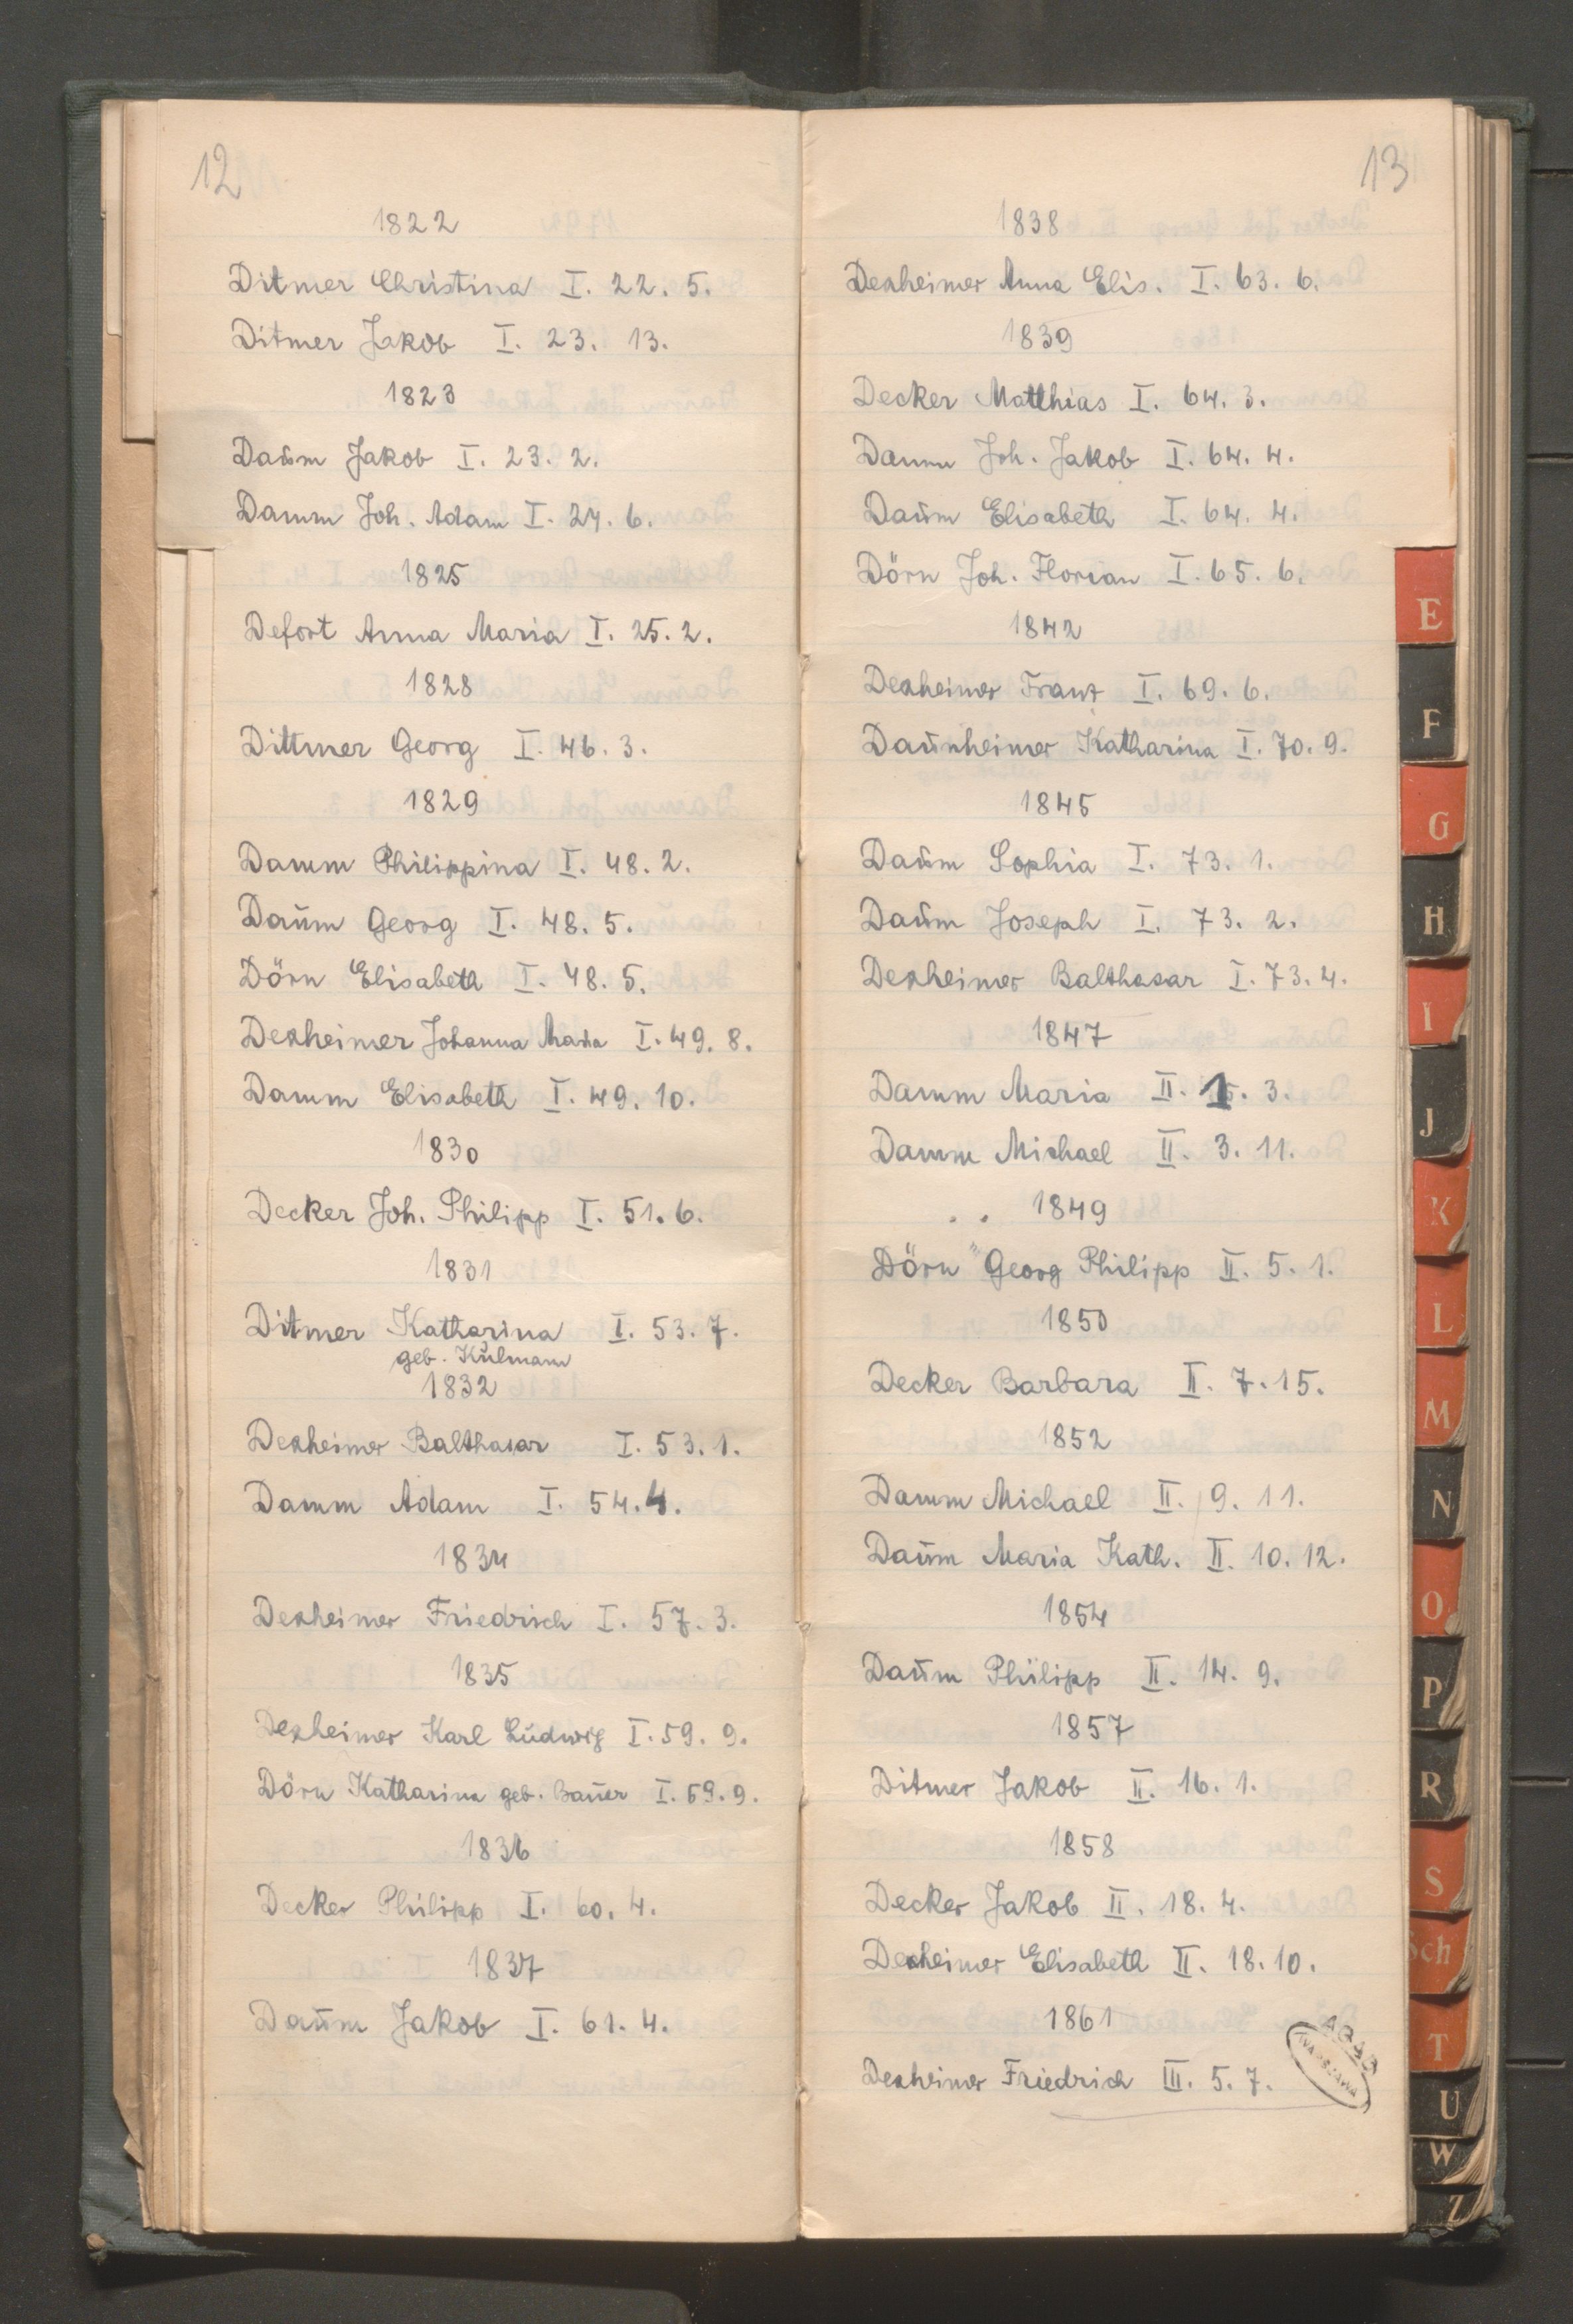 12
1822
Ditmer Christina I. 22. 5.
Ditmer Jakob I. 23. 13.
1823
Daŭm Jakob I. 23. 2.
Damm Joh. Adam I. 24. 6.
1825
Defort Anna Maria I. 25. 2.
1828
Dittmer Georg I. 46. 3.
1829
Damm Philippina I. 48. 2.
Daŭm Georg I. 48. 5.
Dörn Elisabeth I. 48. 5.
Dexheimer Johanna Maria I. 49. 8.
Damm Elisabeth I. 49. 10.
1830
Decker Joh. Philipp I. 51. 6.
1831
Ditmer Katharina I. 53. 7.
geb. Kŭlmann
1832
Dexheimer Balthasar I. 53. 1.
Damm Adam I. 54. 4.
1834
Dexheimer Friedrich I. 57. 3.
1835
Dexheimer Karl Lŭdwig I. 59. 9.
Dörn Katharina geb. Baŭer I. 59. 9.
1836
Decker Philipp I. 60. 4.
1837
Daŭm Jakob I. 61. 4.
13
1838
Dexheimer Anna Elis. I. 63. 6.
1839
Decker Matthias I. 64. 3.
Damm Joh. Jakob I. 64. 4.
Daŭm Elisabeth I. 64. 4.
Dörn Joh. Florian I. 65. 6.
1842
Dexheimer Franz I. 69. 6.
Daŭnheimer Katharina I. 70. 9.
1845
Daŭm Sophia I. 73. 1.
Daŭm Joseph I. 73. 2.
Dexheimer Balthasar I. 73. 4.
1847
Damm Maria II. 1. 3.
Damm Michael II. 3. 11.
1849
Dörn Georg Philipp II. 5. 1.
1850
Decker Barbara II. 7. 15.
1852
Damm Michael II. 9. 11.
Daŭm Maria Kath. II. 10. 12.
1854
Daŭm Philipp II. 14. 9.
1857
Ditmer Jakob II. 16. 1.
1858
Decker Jakob II. 18. 4.
Dexheimer Elisabeth II. 18. 10.
1861
Dexheimer Friedrich III. 5. 7.
AGAD
WARSZAWA
E
F
G
H
I
J
K
L
M
N
O
P
R
S
Sch
T
U
W
Z